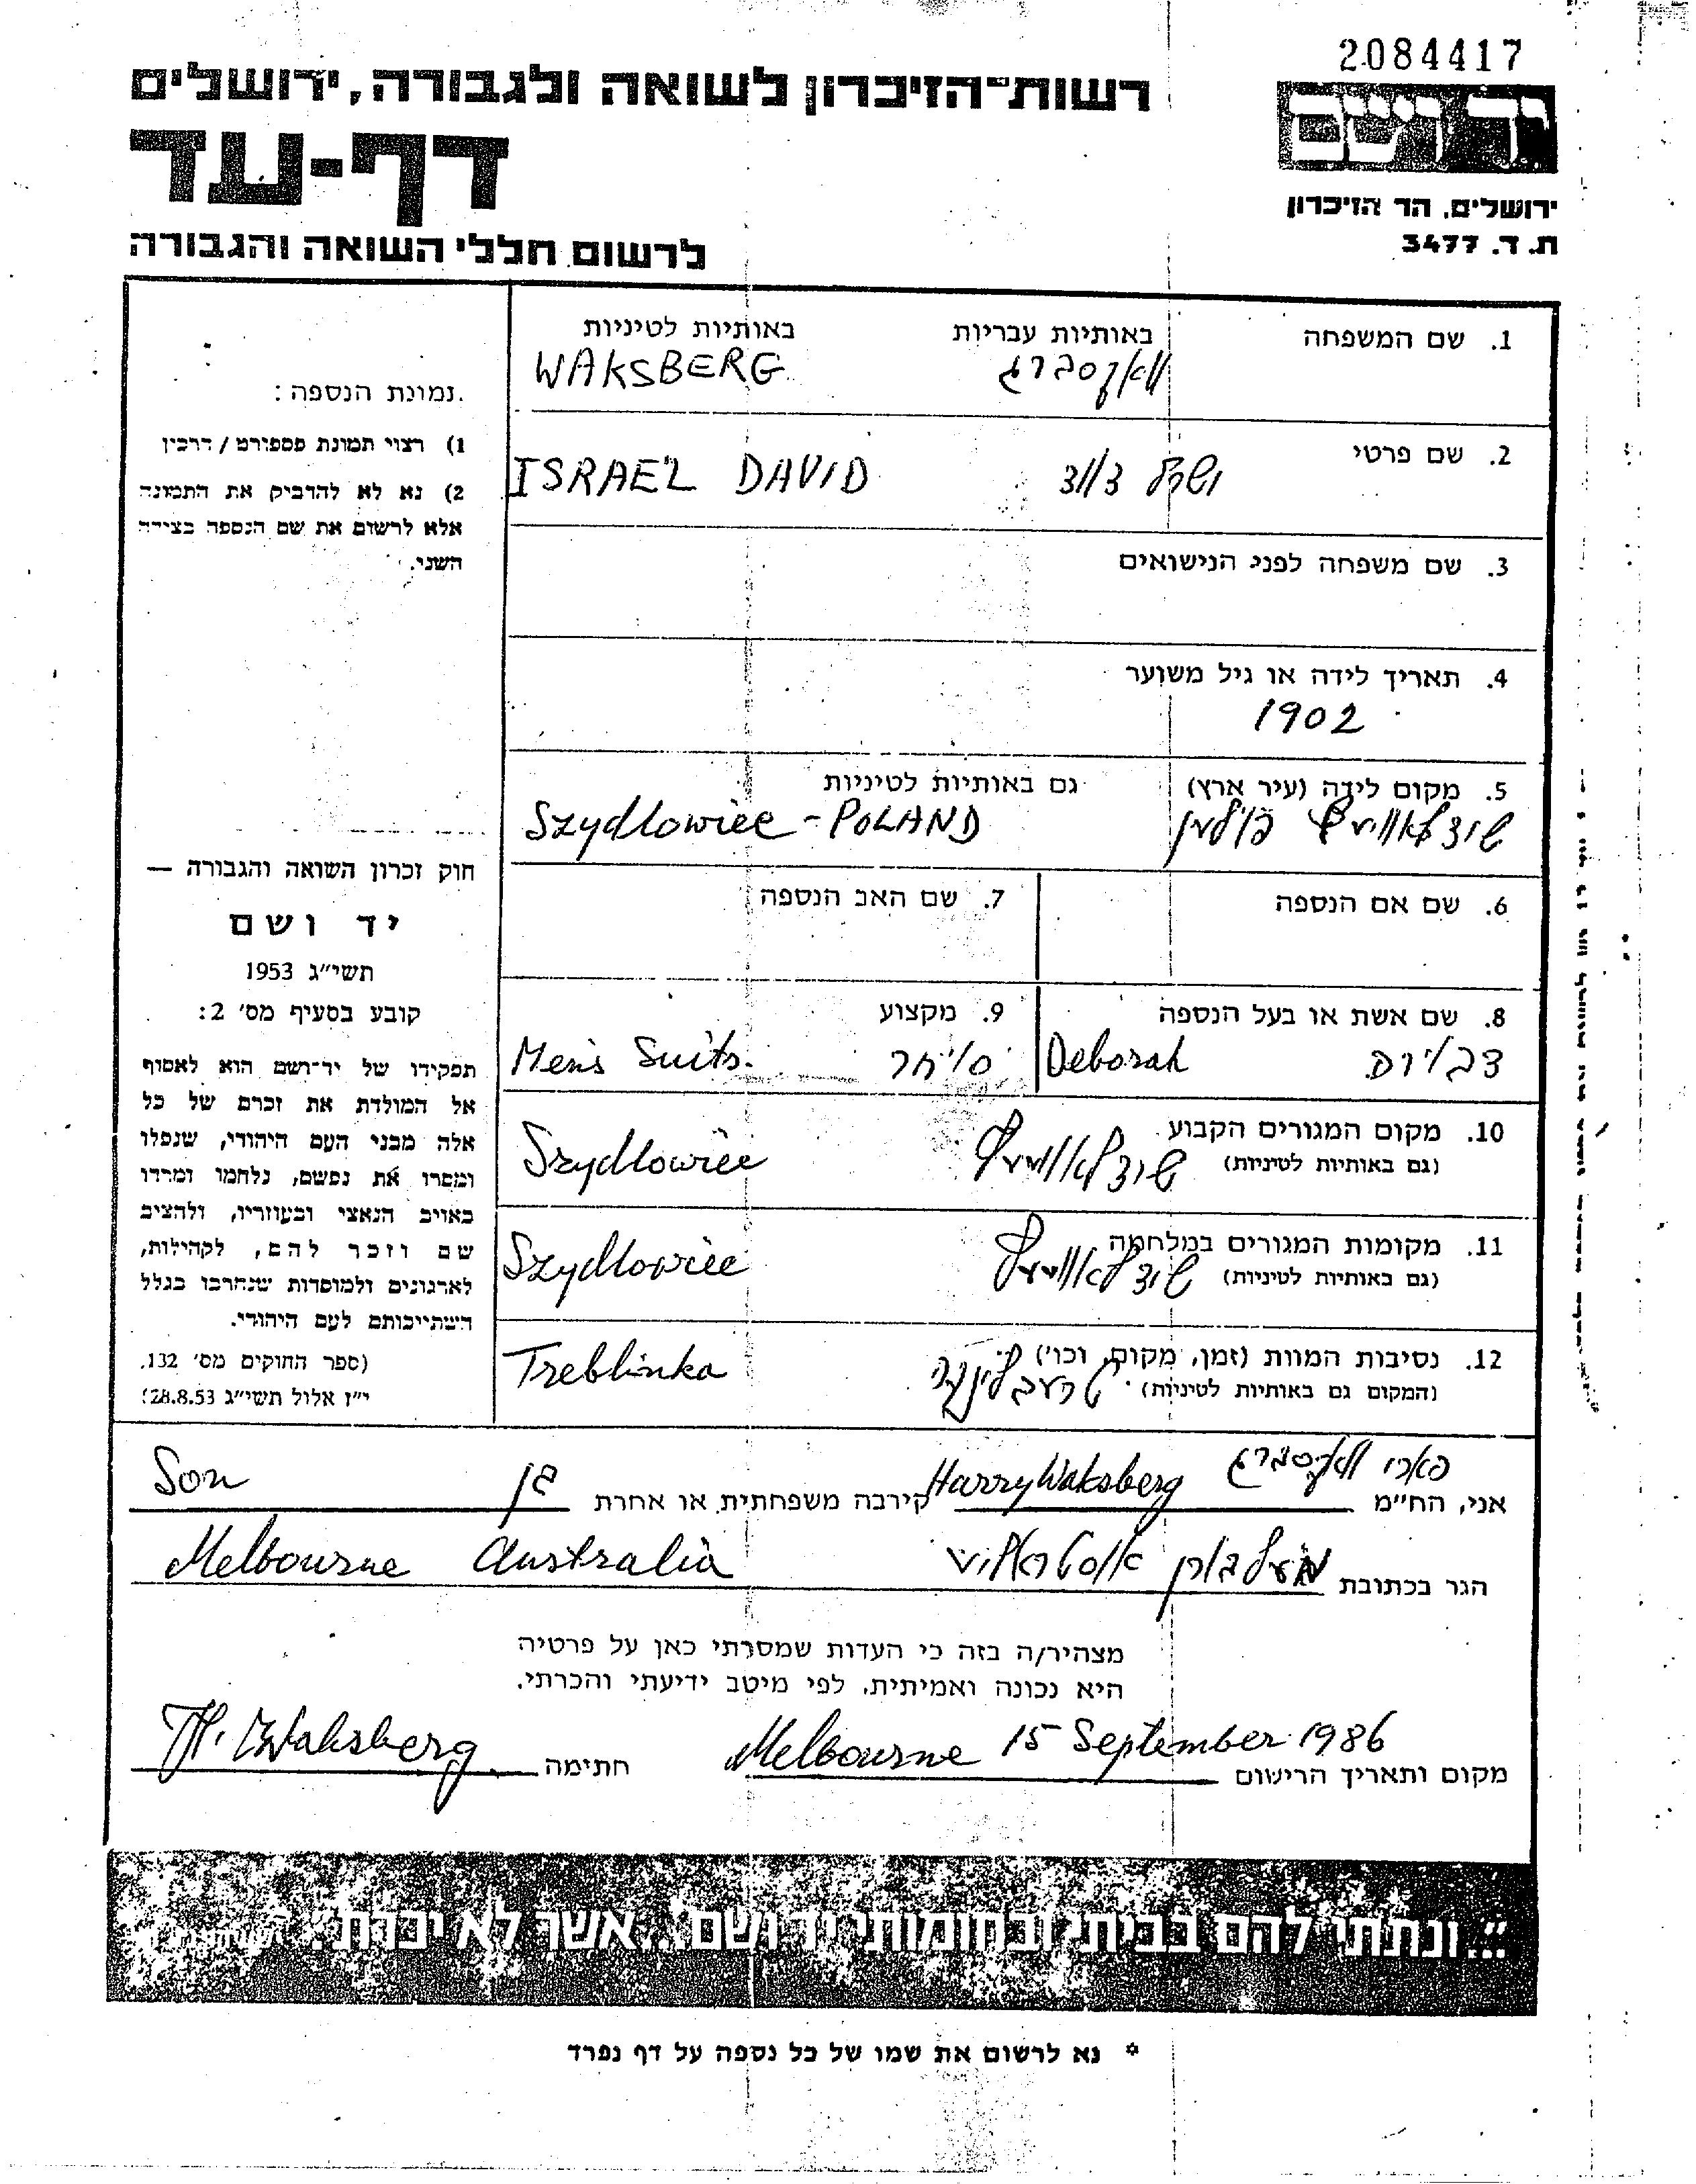 2084417
יד ושם
רשות־הזיכרון לשואה ולגבורה, ירושלים
דף-עד
לרשום חללי השואה והגבורה
ירושלים, הר הזיכרון
ת. ד. 3477
1. שם המשפחה באותיות עבריות באותיות לטיניות
וואקסברג WAKSBERG
2. שם פרטי
ISRAEL DAVID
3. שם משפחה לפני הנישואים
4. תאריך לידה או גיל משוער
1902
5. מקום לידה (עיר ארץ) גם באותיות לטיניות
שידלאוויעץ פוילען Szydlowiec - POLAND
6. שם אם הנספה
7. שם האב הנספה
8. שם אשת או בעל הנספה
Deborah
9. מקצוע
סוחר Men's Suits.
10. מקום המגורים הקבוע
(גם באותיות לטיניות)
Szydlowiec
11. מקומות המגורים במלחמה
(גם באותיות לטיניות)
Szydlowiec
12. נסיבות המוות (זמן, מקום, וכו')
(המקום גם באותיות לטיניות)
טרעבלינקה Treblinka
תמונת הנספה:
1) רצוי תמונת פספורט / דרכון
2) נא לא להדביק את התמונה
אלא לרשום את שם הנספה בצידה
השני.
חוק זכרון השואה והגבורה —
יד ושם
תשי"ג 1953
קובע בסעיף מס' 2:
תפקידו של יד־ושם הוא לאסוף
אל המולדת את זכרם של כל
אלה מבני העם היהודי, שנפלו
ומסרו את נפשם, נלחמו ומרדו
באויב הנאצי ובעוזריו, ולהציב
שם וזכר להם, לקהילות,
לארגונים ולמוסדות שנחרבו בגלל
השתייכותם לעם היהודי.
(ספר החוקים מס' 132,
י"ז אלול תשי"ג 28.8.53)
אני, הח"מ וואקסברג Harry Waksberg קירבה משפחתית או אחרת בן Son
הגר בכתובת מעלבורן אוסטראליע Melbourne Australia
מצהיר/ה בזה כי העדות שמסרתי כאן על פרטיה
היא נכונה ואמיתית, לפי מיטב ידיעתי והכרתי.
מקום ותאריך הרישום Melbourne 15 September 1986 חתימה H. Waksberg
"...ונתתי להם בביתי ובחומותי יד ושם... אשר לא יכרת"
* נא לרשום את שמו של כל נספה על דף נפרד